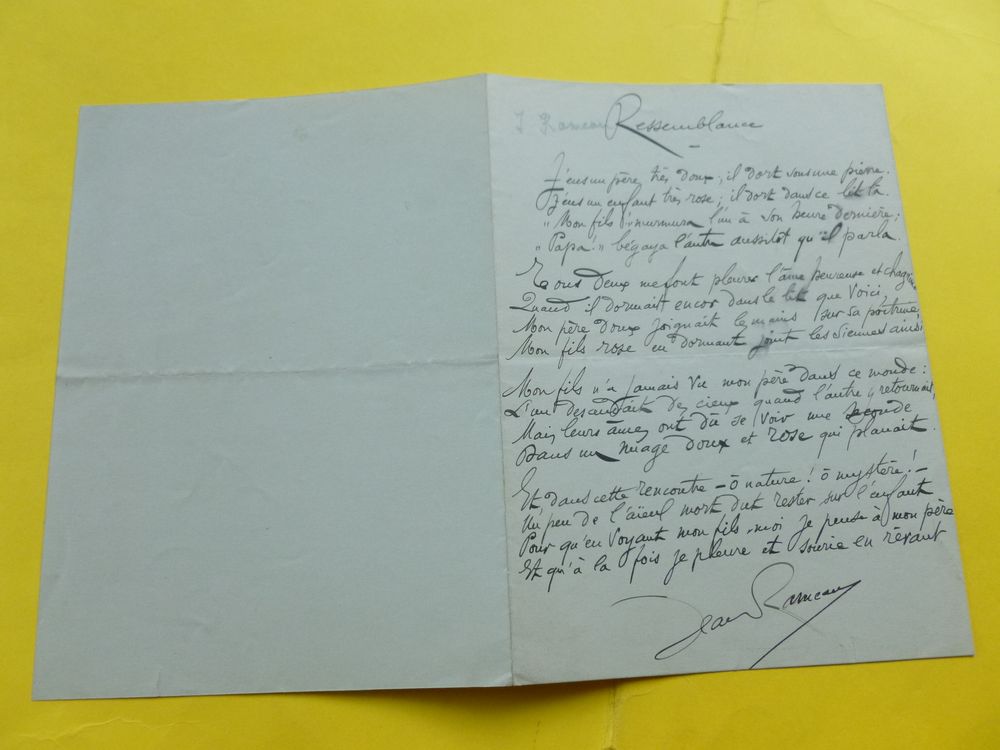 J. Rameau
Ressemblance
J'eus un père très doux ; il dort sous une pierre.
J'eus un enfant très rose ; il dort dans ce lit là.
"Mon fils !" murmura l'un à son heure dernière ;
"Papa !" bégaya l'autre aussitôt qu'il parla.
Tous deux me font pleurer l'âme heureuse et chagrine
Quand il dormait encor dans le lit que voici,
Mon père doux joignait les mains sur sa poitrine
Mon fils rose en dormant joint les siennes ainsi
Mon fils n'a jamais vu mon père dans ce monde :
L'un descendait des cieux quand l'autre y retournait,
Mais leurs âmes ont dû se voir une seconde
Dans un nuage doux et rose qui planait.
Et, dans cette rencontre – ô nature ! ô mystère ! –
Un peu de l'aïeul mort dut rester sur l'enfant
Pour qu'en voyant mon fils, moi je pense à mon père
Et qu'à la fois je pleure et sourie en rêvant
Jean Rameau